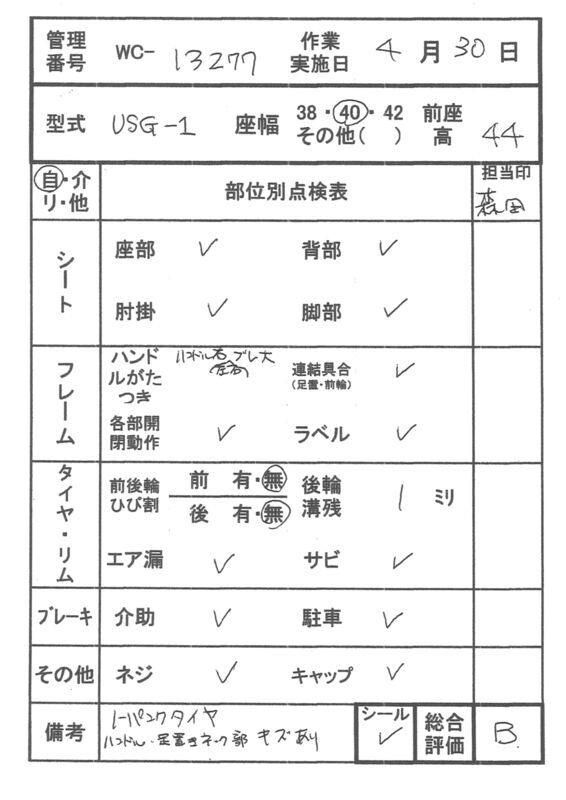 管理番号 WC- 13277 作業実施日 4月30日
型式 USG-1 座幅 38・40・42 その他( ) 前座高 44
自・介・リ・他 部位別点検表 担当印 森田
シート 座部 ✓ 背部 ✓
肘掛 ✓ 脚部 ✓
フレーム ハンドルがたつき ハンドル右 ブレ大 連結具合(足置・前輪) ✓
各部開閉動作 ✓ ラベル ✓
タイヤ・リム 前後輪ひび割 前 有・無 後輪溝残 1 ミリ
後 有・無
エア漏 ✓ サビ ✓
ブレーキ 介助 ✓ 駐車 ✓
その他 ネジ ✓ キャップ ✓
備考 ノーパンクタイヤ シール ✓ 総合評価 B.
ハンドル・足置きネック部 キズあり